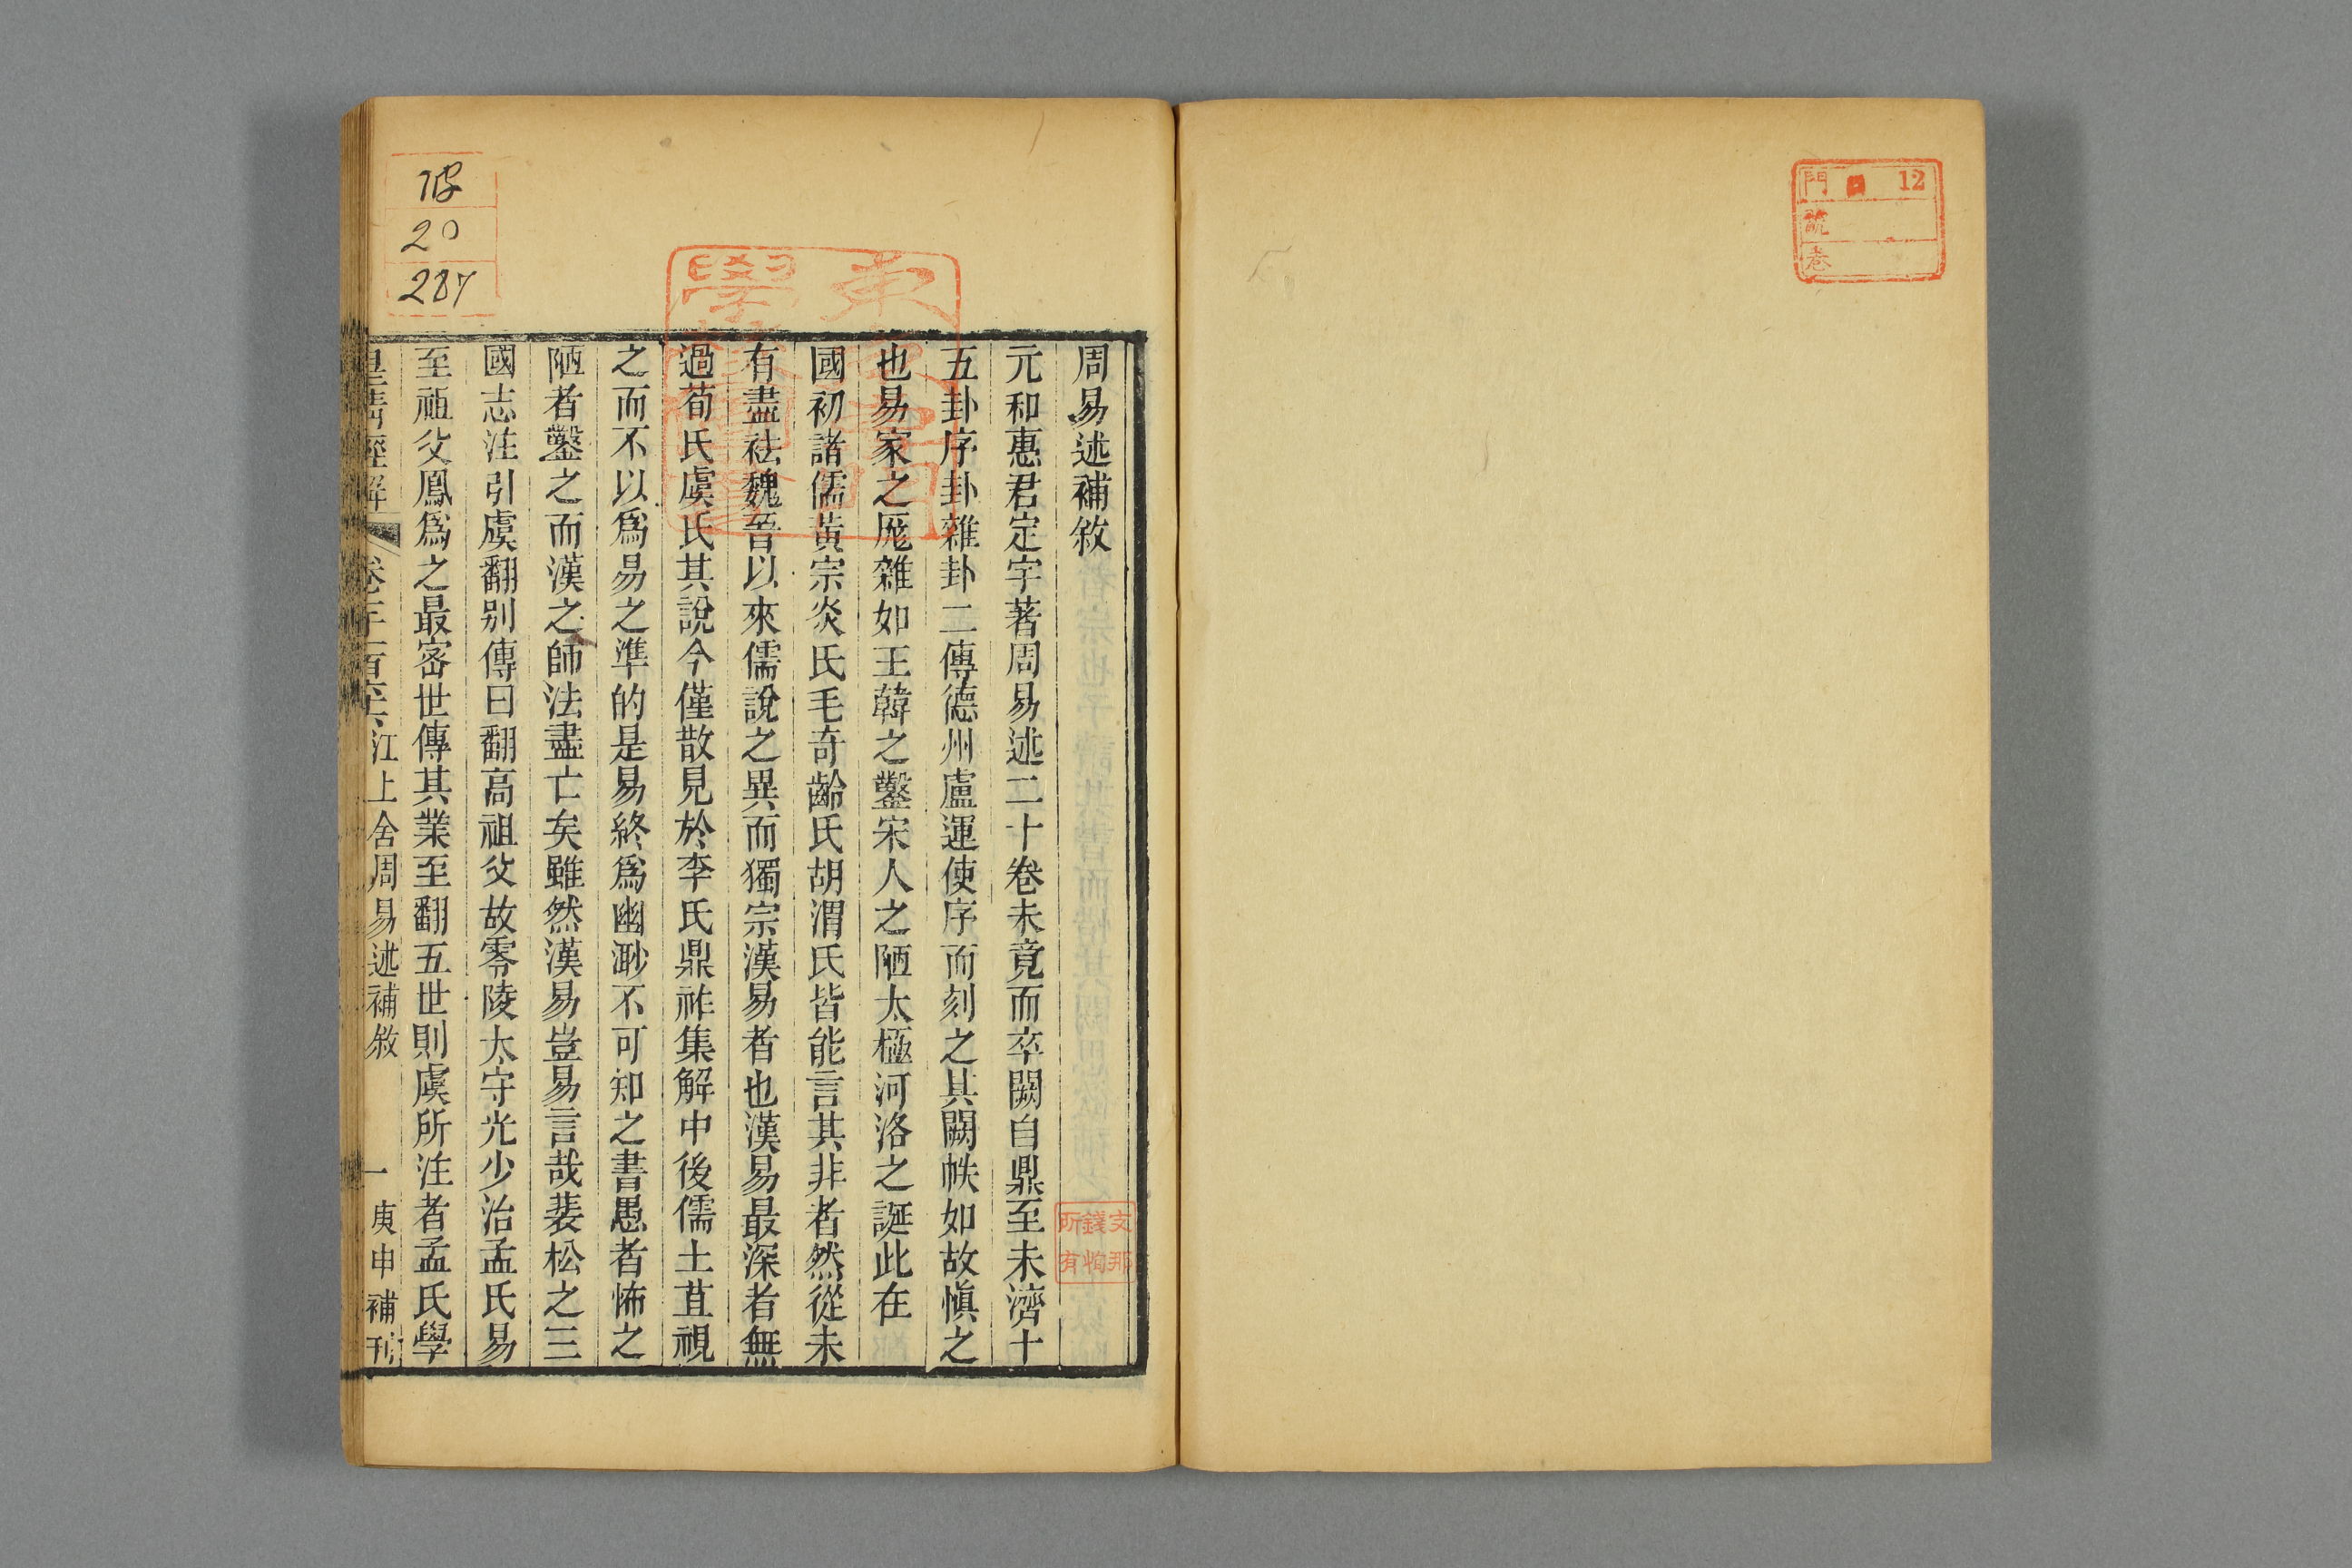 門 12
號
卷
周易述補敘
元和惠君定宇著周易述二十卷未竟而卒闕自鼎至未濟十
五卦序卦雜卦二傳德州盧運使序而刻之其闕帙如故愼之
也易家之厖雜如王韓之鑿宋人之陋太極河洛之誕此在
國初諸儒黃宗炎氏毛奇齡氏胡渭氏皆能言其非者然從未
有盡祛魏晉以來儒說之異而獨宗漢易者也漢易最深者無
過荀氏虞氏其說今僅散見於李氏鼎祚集解中後儒土苴視
之而不以爲易之準的是易終爲幽渺不可知之書愚者怖之
陋者鑿之而漢之師法盡亡矣雖然漢易豈易言哉裴松之三
國志注引虞翻別傳曰翻高祖父故零陵太守光少治孟氏易
至祖父鳳爲之最密世傳其業至翻五世則虞所注者孟氏學
皇淸經解 江上舍周易述補敘 一 庚申補刊
文那
錢恂
所有
1
20
287